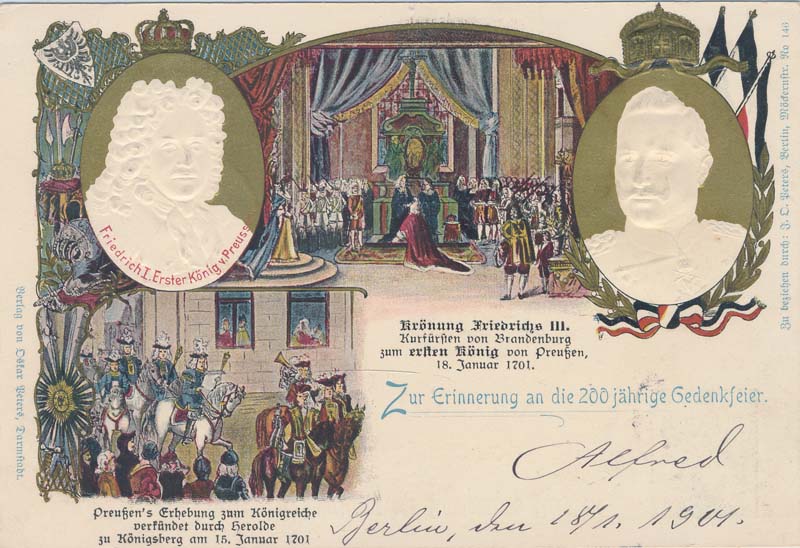 Friedrich I. Erster König v. Preuss
Krönung Friedrichs III.
Kurfürsten von Brandenburg
zum ersten König von Preußen,
18. Januar 1701.
Zur Erinnerung an die 200 jährige Gedenkfeier.
Alfred
Berlin, den 18/1. 1901.
Preußen's Erhebung zum Königreiche
verkündet durch Herolde
zu Königsberg am 15. Januar 1701
Verlag von Oskar Peters, Darmstadt.
Zu beziehen durch: J. O. Peters, Berlin, Möckernstr. No 146